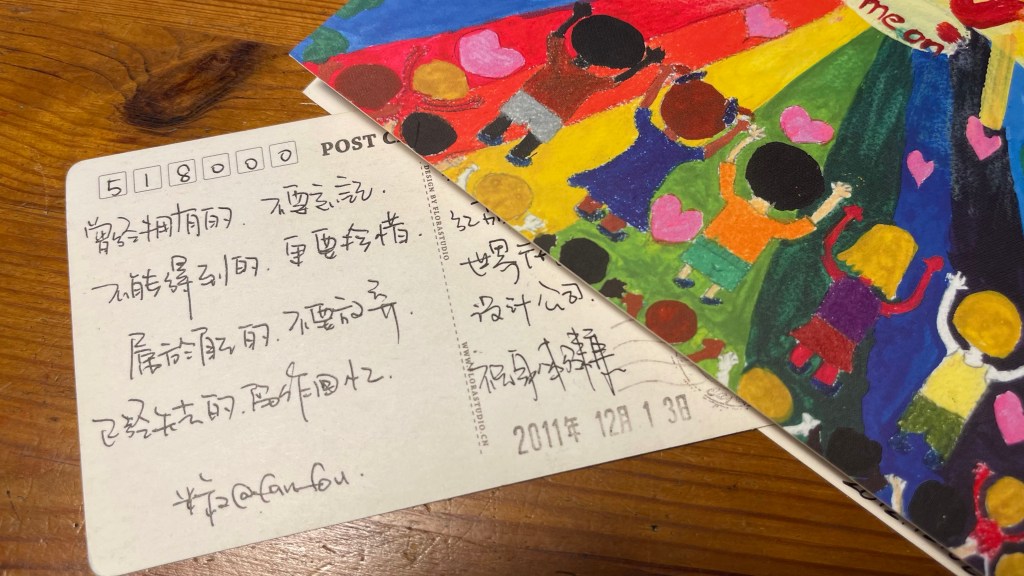 me on
518000
POST C
曾经拥有的. 不要忘记.
不能得到的. 更要珍惜.
属於自己的. 不要放弃.
已经失去的. 留作回忆.
DESIGN BY FLORASTUDIO
WWW.FLORASTUDIO.CN
世界
设计公司.
2011年 12月 1 3日